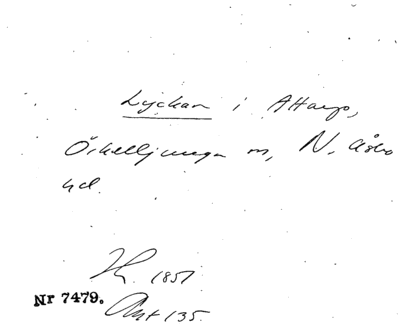 Lyckan i Attarp,
Örkelljunga sn, N. Åsbo
hd.
Hfl. 1851
Nr 7479.
Akt 135.